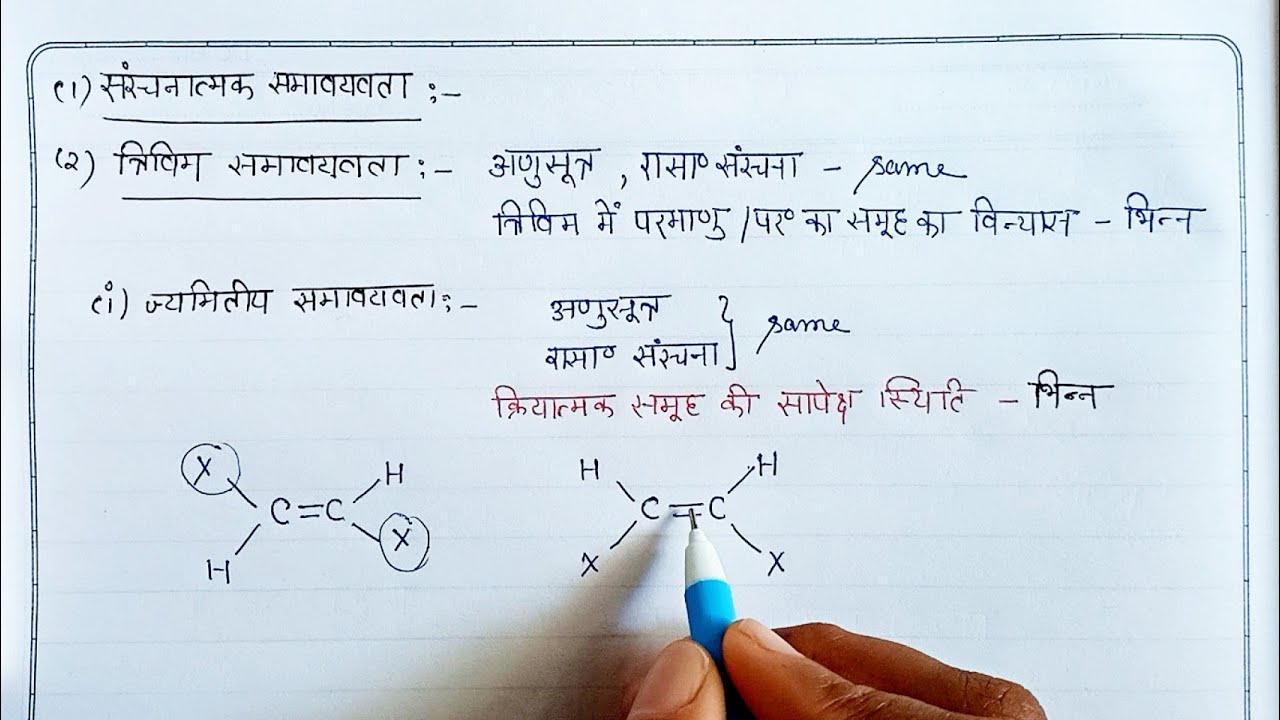 (१) संरचनात्मक समावयवता :-
(२) त्रिविम समावयवता :- अणुसूत्र , रासा० संरचना - same
त्रिविम में परमाणु /पर० का समूह का विन्यास - भिन्न
(i) ज्यमितीय समावयवता :- अणुसूत्र
रासा० संरचना } same
क्रियात्मक समूह की सापेक्ष स्थिति - भिन्न
X H H H
C=C C=C
H X X X